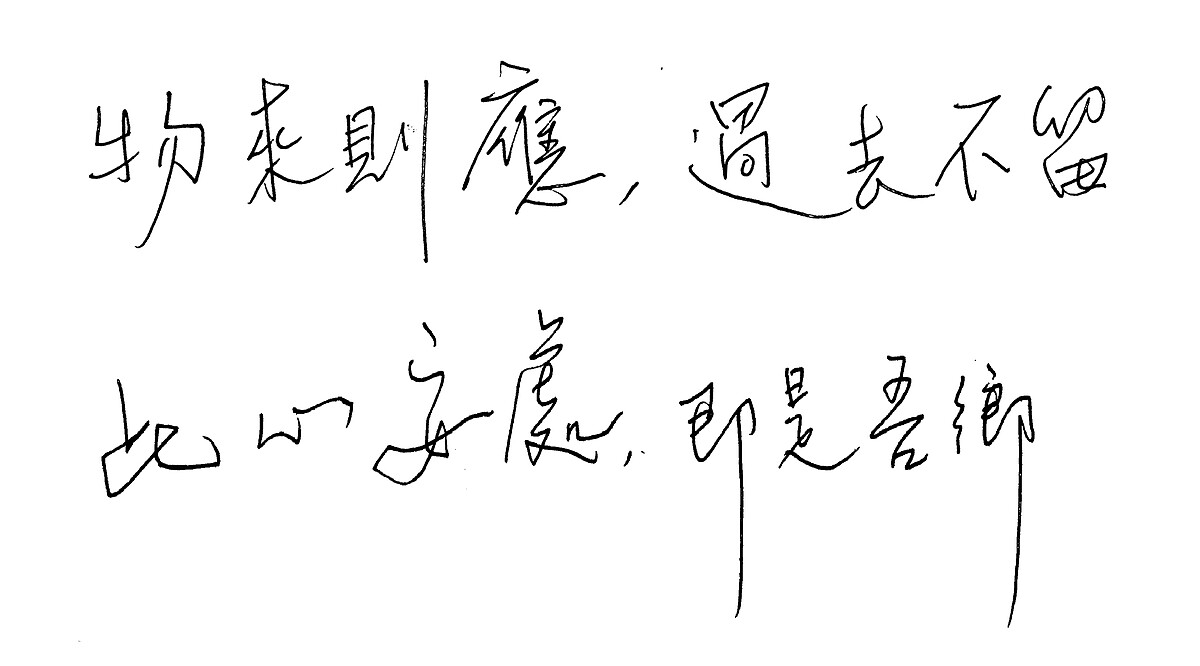 物來則應,過去不留
此心安處,即是吾鄉